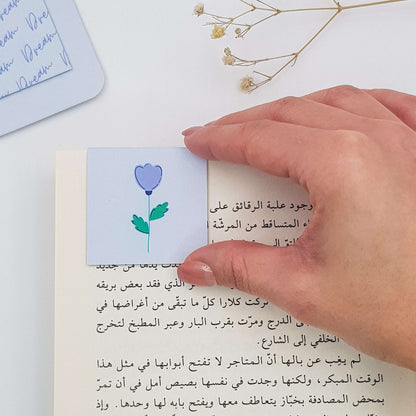 Dream Dre
Dream
Dream
Dream
وجود علبة الرقائق على
المتساقط من المرشّة
يدها من جديد
الذي فقد بعض بريقه
تركت كلارا كلّ ما تبقّى من أغراضها في
الدرج ومرّت بقرب البار وعبر المطبخ لتخرج
الخلفي إلى الشارع.
لم يغِب عن بالها أنّ المتاجر لا تفتح أبوابها في مثل هذا
الوقت المبكر، ولكنها وجدت في نفسها بصيص أمل في أن تمرّ
بمحض المصادفة بخبّاز يتعاطف معها ويفتح بابه لها وحدها. وإذ